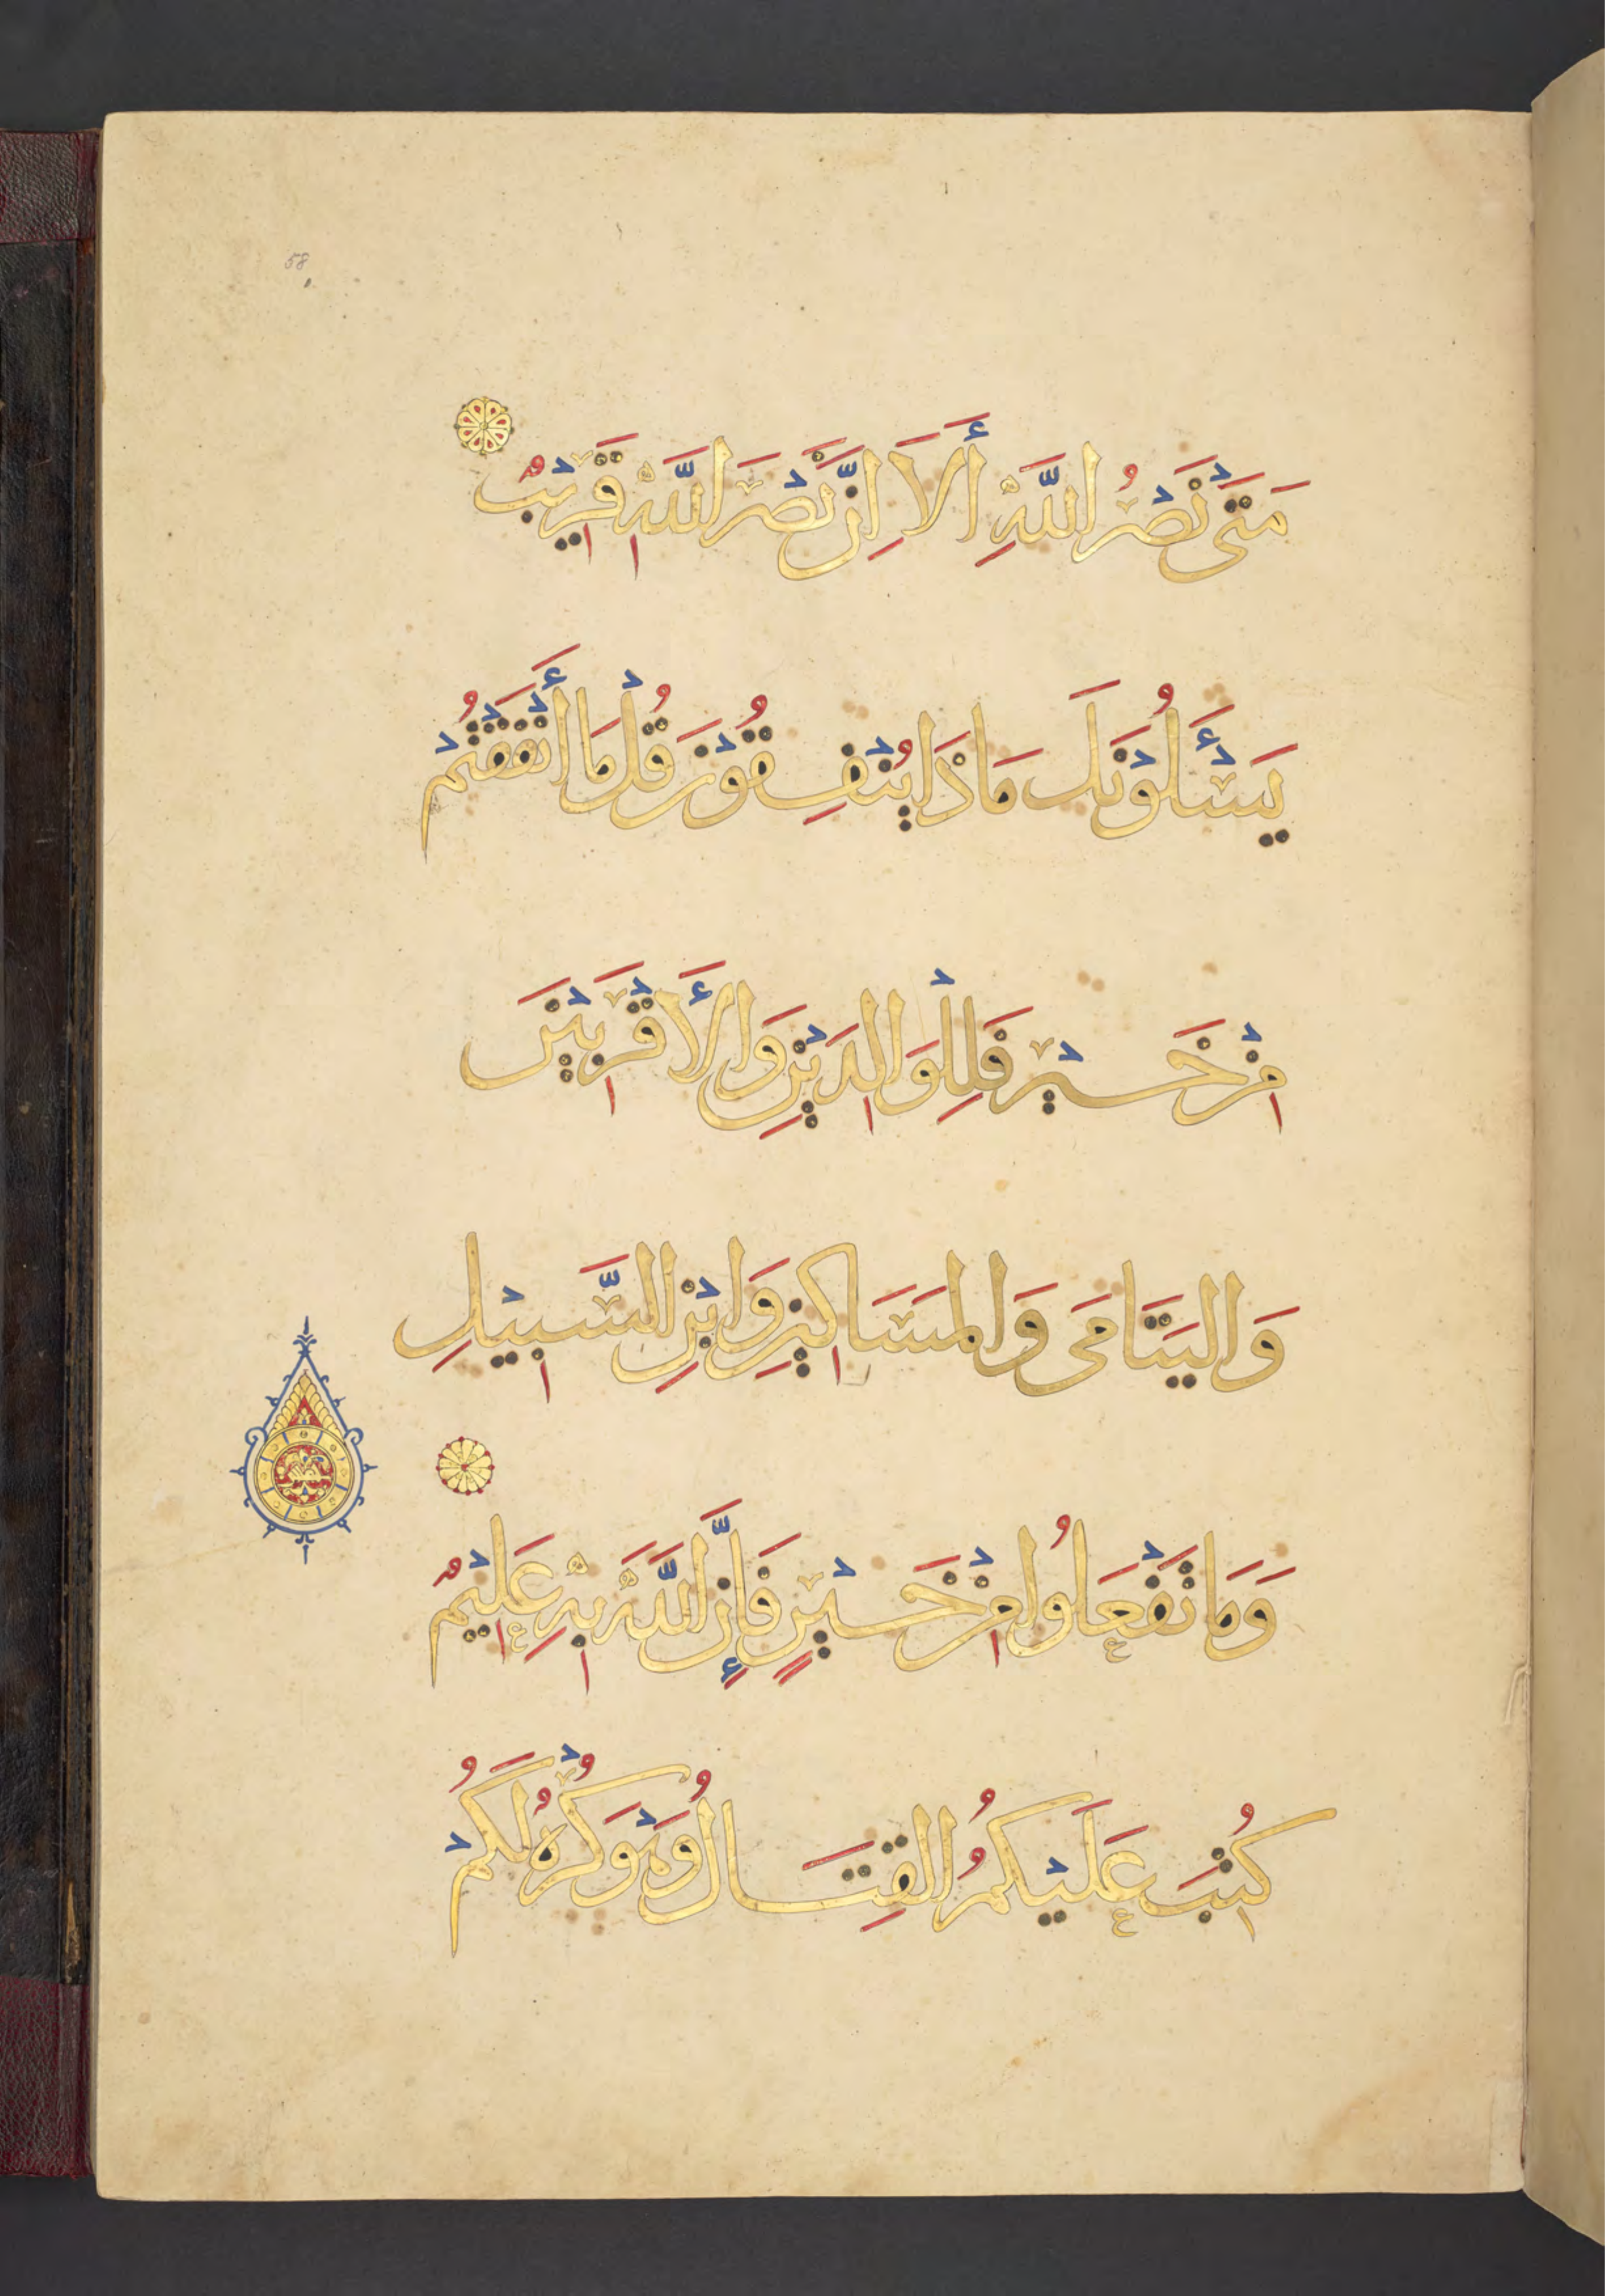 58
مَتَىٰ نَصْرُ اللَّهِ أَلَا إِنَّ نَصْرَ اللَّهِ قَرِيْبٌ
يَسْأَلُوْنَكَ مَاذَا يُنْفِقُوْنَ قُلْ مَا أَنْفَقْتُمْ
مِنْ خَيْرٍ فَلِلْوَالِدَيْنِ وَالْأَقْرَبِيْنَ
وَالْيَتَامَى وَالْمَسَاكِيْنِ وَابْنِ السَّبِيْلِ
وَمَا تَفْعَلُوا مِنْ خَيْرٍ فَإِنَّ اللَّهَ بِهِ عَلِيْمٌ
كُتِبَ عَلَيْكُمُ الْقِتَالُ وَهُوَ كُرْهٌ لَكُمْ